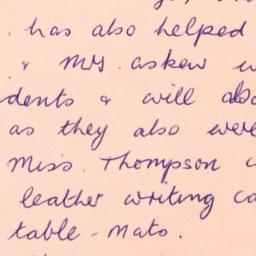 has also helped
& Mrs. askew
dents & will also
as they also were
Miss. Thompson
leather writing
table - mats.